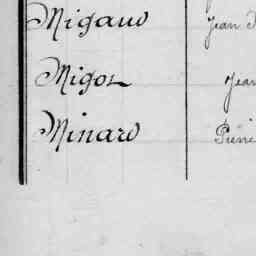 Migaud Jean
Migot Jean
Minard Pierre